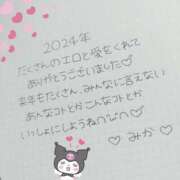 2024年
たくさんのエロと愛をくれて
ありがとうございました♡
来年もたくさん、みんなに言えない
あんなコトとかこんなコトとか
いっしょにしようねᐢ
♡ みか ♡